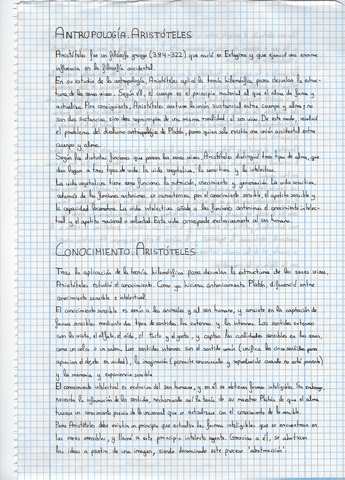 ANTROPOLOGÍA. ARISTÓTELES
Aristóteles fue un filósofo griego (384-322) que nació en Estagira y que ejerció una enorme
influencia en la filosofía occidental.
En su estudio de la antropología, Aristóteles aplicó la teoría hilemórfica, para desvelar la estruc-
tura de los seres vivos. Según él, el cuerpo es el principio material al que el alma da forma y
actualiza. Por consiguiente, Aristóteles sostiene la unión sustancial entre cuerpo y alma; no
son dos sustancias, sino dos principios de una misma realidad: el ser vivo. De este modo, resolvió
el problema del dualismo antropológico de Platón, para quien solo existía una unión accidental entre
Cuerpo y alma.
Según las distintas funciones que posean los seres vivos, Aristóteles distinguió tres tipos de alma, que
dan lugar a tres tipos de vida: la vida vegetativa, la sensitiva y la intelectiva.
La vida vegetativa tiene como funciones la nutrición, crecimiento y generación. La vida sensitiva,
además de las funciones anteriores, se caracteriza por el conocimiento sensible, el apetito sensible y
la capacidad locomotora. La vida intelectiva añade a las funciones anteriores el conocimiento intelec-
tual y el apetito racional o voluntad. Esta vida corresponde exclusivamente al ser humano.
CONOCIMIENTO. ARISTÓTELES
Tras la aplicación de la teoría hilemórfica para desvelar la estructura de los seres vivos,
Aristóteles estudió el conocimiento. Como ya hiciera anteriormente Platón, diferenció entre
conocimiento sensible e intelectual.
El conocimiento sensible es común a los animales y al ser humano, y consiste en la captación de
formas sensibles mediante dos tipos de sentidos: los externos y los internos. Los sentidos externos
son la vista, el olfato, el oído, el tacto y el gusto, y captan las cualidades sensibles en los seres,
como un color o un sabor. Los sentidos internos son el sentido común (unifica las sensaciones para
apreciar el objeto en unidad), la imaginación (permite reconocerlo y reproducirlo cuando no está presente)
y la memoria o experiencia sensible.
El conocimiento intelectual es exclusivo del ser humano, y en él se obtienen formas inteligibles. Sin embargo,
necesita la información de los sentidos, rechazando así la teoría de su maestro Platón de que el alma
tuviera un conocimiento previo de lo universal que se actualizase con el conocimiento de lo sensible.
Para Aristóteles debe existir un principio que actualice las formas inteligibles que se encuentran en
las cosas sensibles, y llamó a este principio intelecto agente. Gracias a él, se abstraen
las ideas a partir de una imagen, siendo denominado este proceso "abstracción".